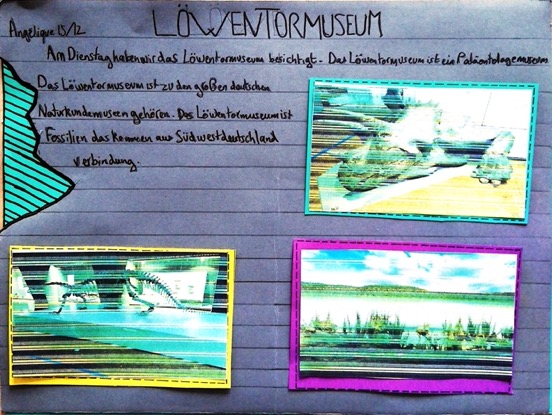 LÖWENTORMUSEUM
Angélique 15/12
Am Dienstag haben wir das Löwentormuseum besichtigt. Das Löwentormuseum ist ein Paläontologemuseum.
Das Löwentormuseum ist zu den großen deutschen
Naturkundemuseen gehören. Das Löwentormuseum ist
Fossilien das kommen aus Südwestdeutschland
verbindung.